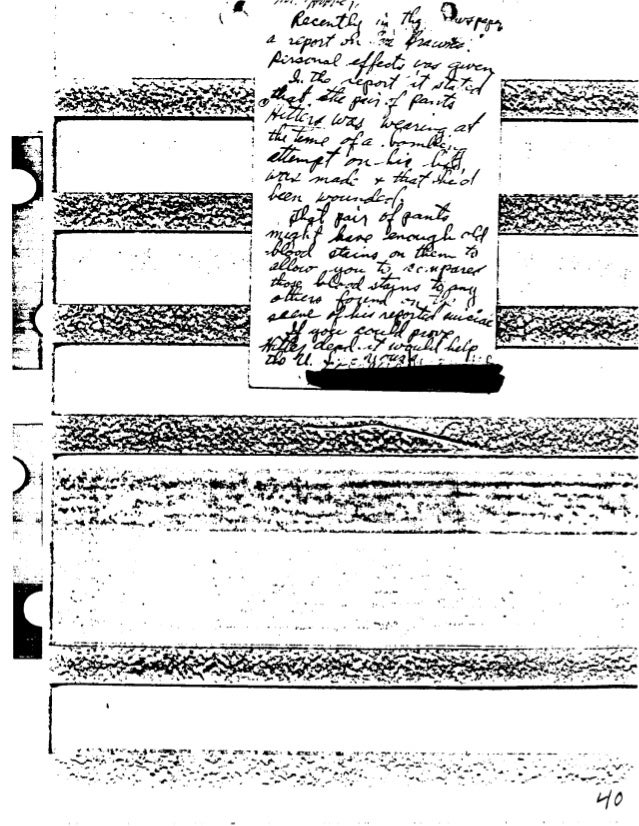 Recently in the newspaper
a report on Eva Brawns
Personal effects was given
In the report it stated
that the pair of pants
Hitlers was wearing at
the time of a bombing
attempt on his life
was made & that he'd
been wounded
That pair of pants
might have enough old
blood stains on them to
allow you to compared
those blood stains to any
others found on the
scene of his reported suicide
If you could prove
Hitler dead it would help
the U.
40